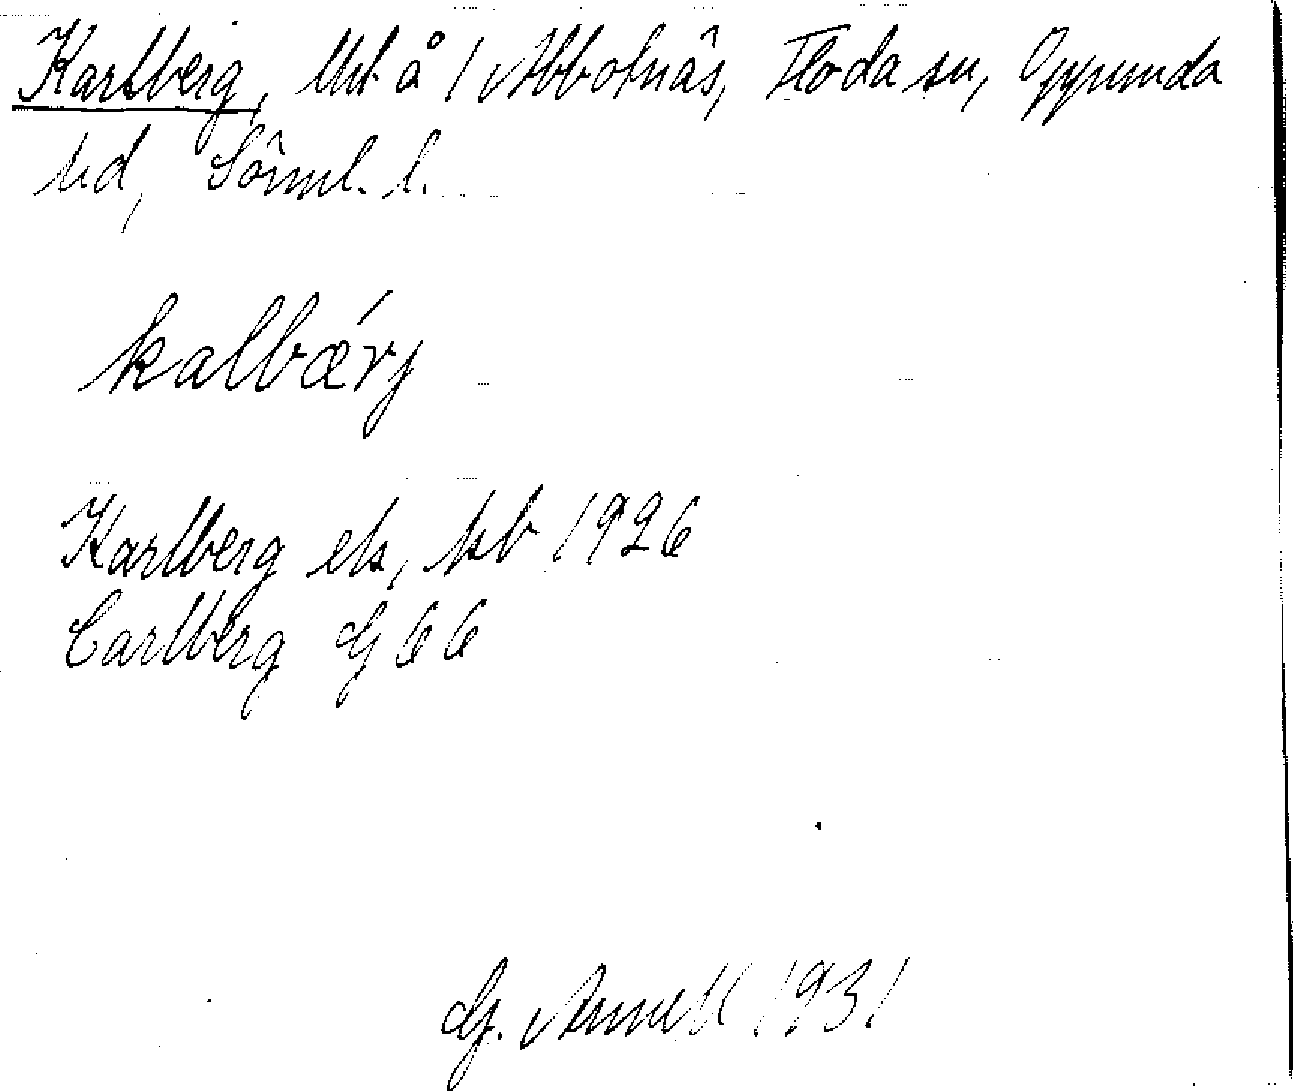 Karlberg, Uht å 1 Abbotnäs, Floda sn, Oppunda
hd, Sörml. l.
kalbærj
Karlberg ek, hb 1926
Carlberg G 66
G. Arnell 1931